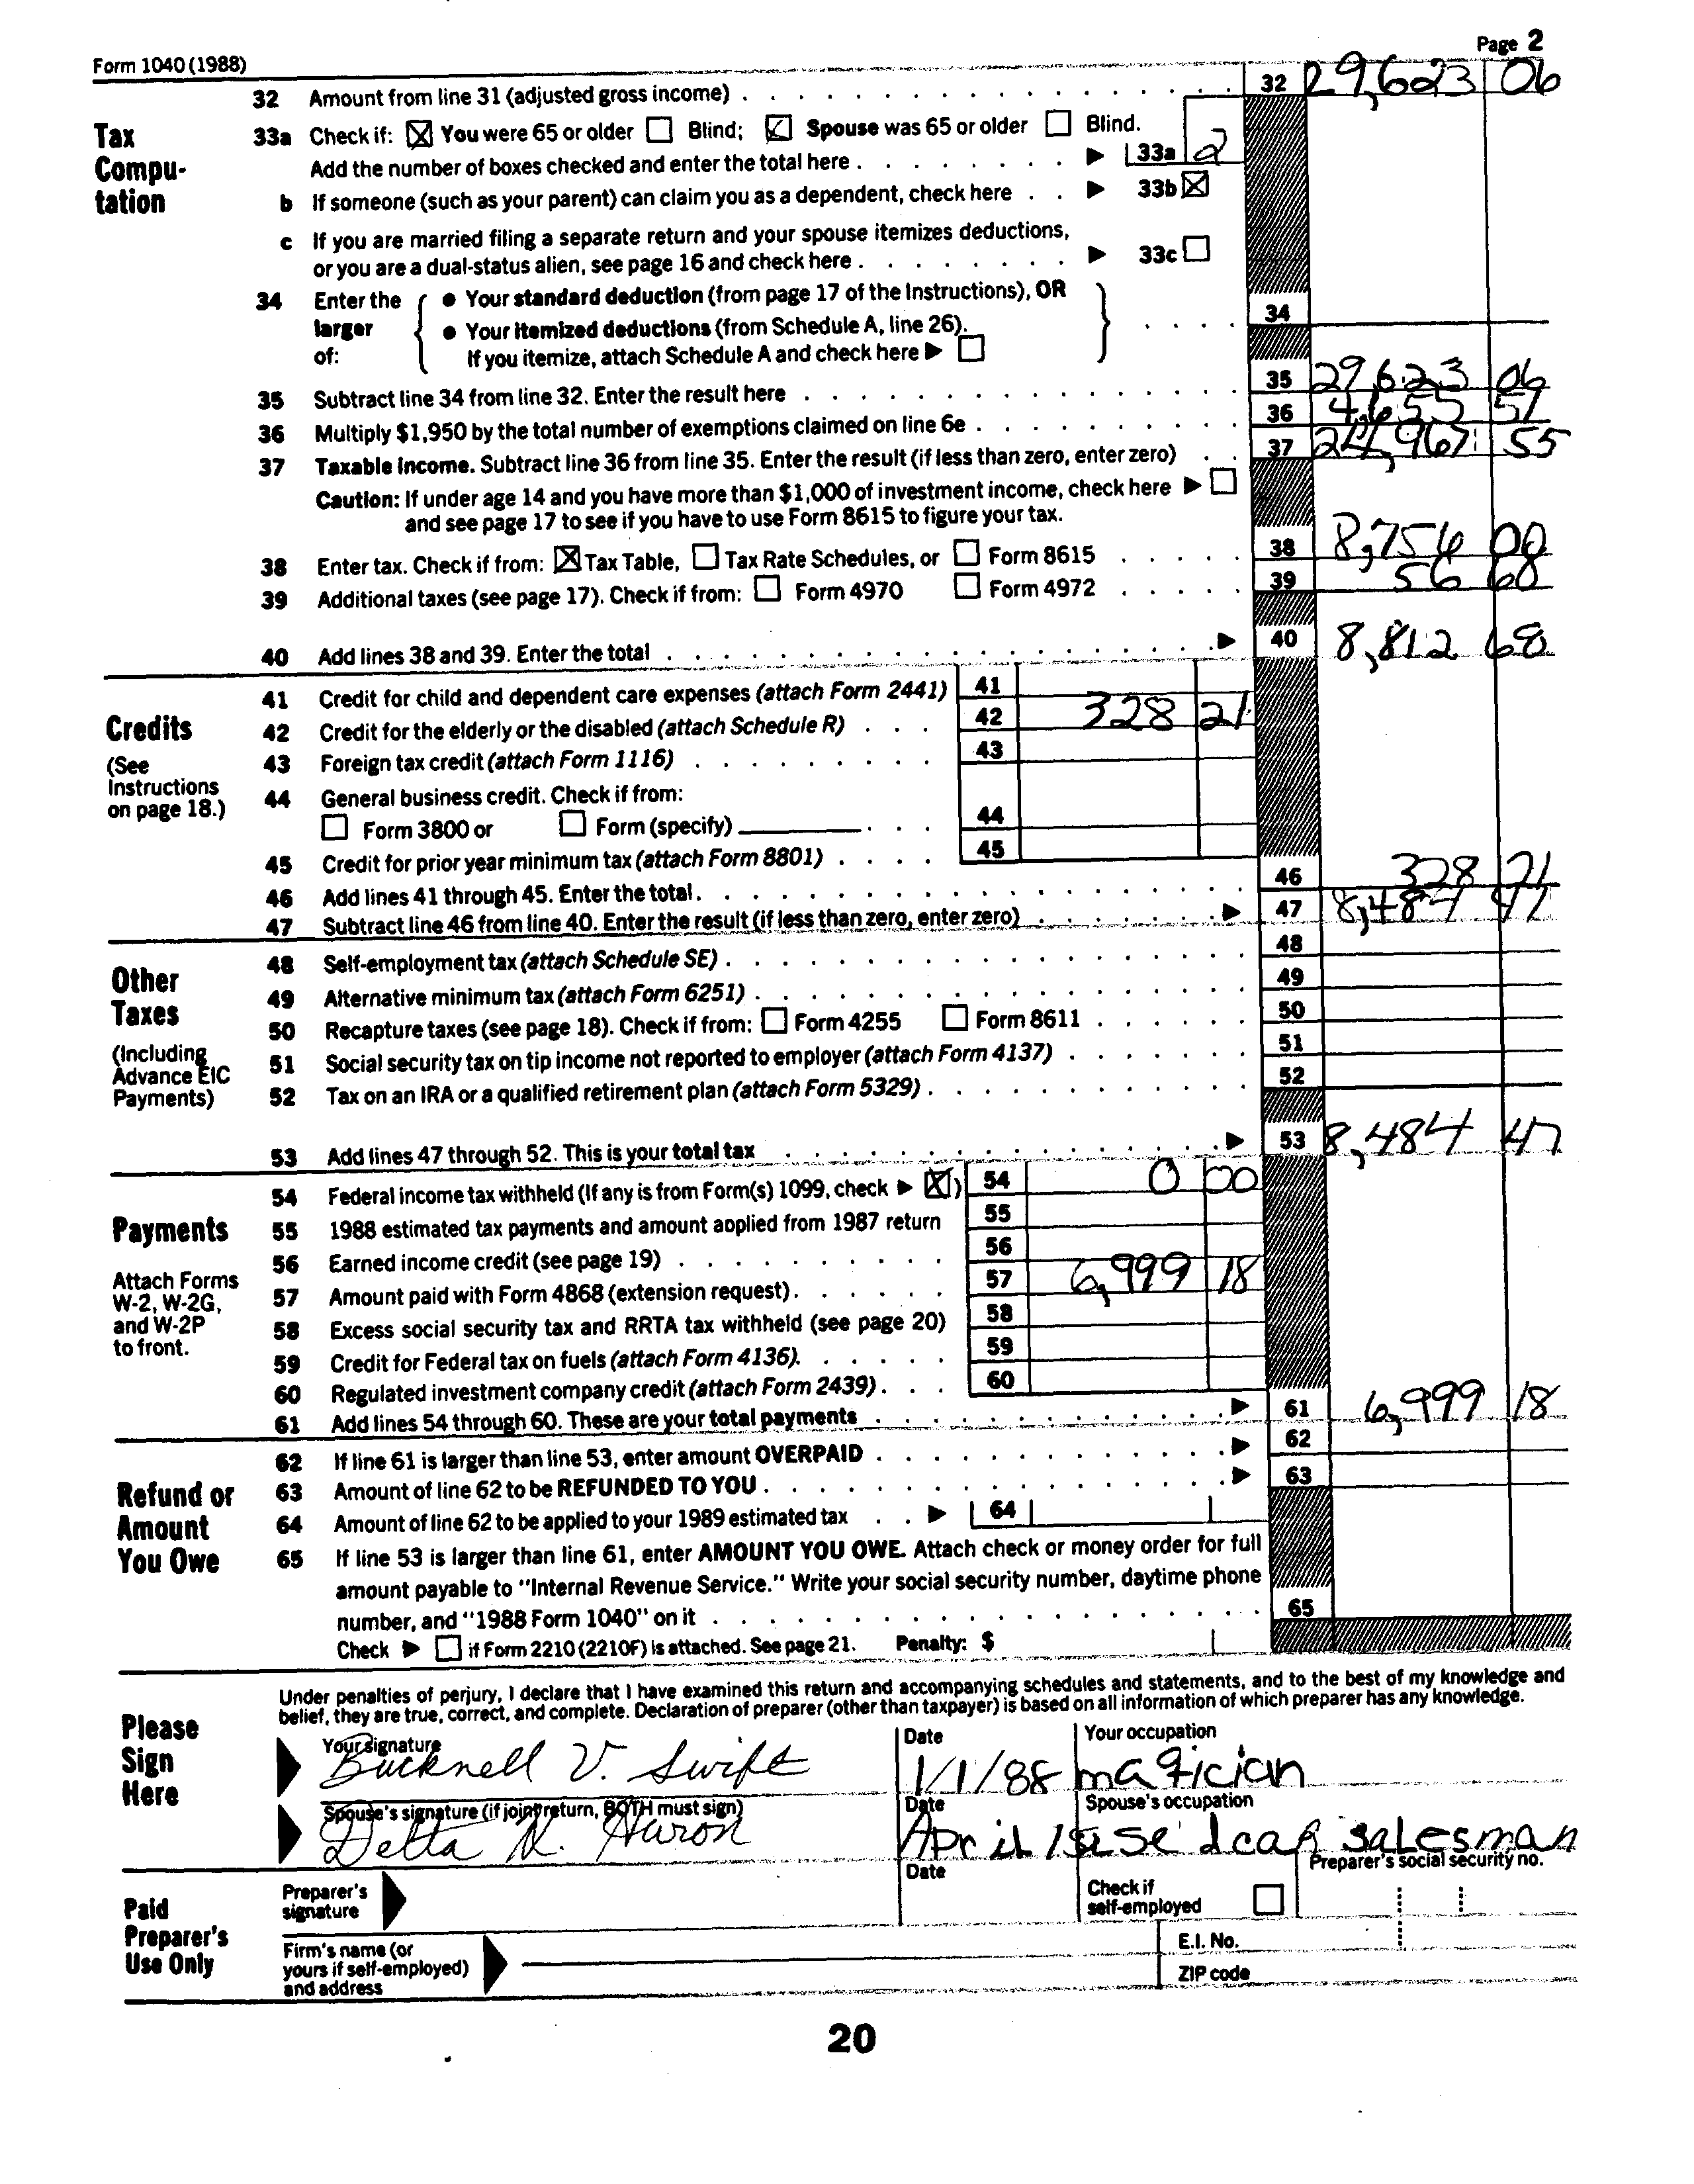 Form 1040 (1988)
Page 2
32 Amount from line 31 (adjusted gross income) . . . 32 29,623 06
Tax Compu-tation
33a Check if: ☒ You were 65 or older ☐ Blind; ☑ Spouse was 65 or older ☐ Blind.
Add the number of boxes checked and enter the total here . . . ▶ 33a 2
b If someone (such as your parent) can claim you as a dependent, check here . . ▶ 33b ☒
c If you are married filing a separate return and your spouse itemizes deductions,
or you are a dual-status alien, see page 16 and check here . . . ▶ 33c ☐
34 Enter the larger of:
● Your standard deduction (from page 17 of the Instructions), OR
● Your itemized deductions (from Schedule A, line 26).
If you itemize, attach Schedule A and check here ▶ ☐
34
35 Subtract line 34 from line 32. Enter the result here . . . 35 29,623 06
36 Multiply $1,950 by the total number of exemptions claimed on line 6e . . . 36 4,655 51
37 Taxable income. Subtract line 36 from line 35. Enter the result (if less than zero, enter zero) . . 37 24,967 55
Caution: If under age 14 and you have more than $1,000 of investment income, check here ▶ ☐
and see page 17 to see if you have to use Form 8615 to figure your tax.
38 Enter tax. Check if from: ☒ Tax Table, ☐ Tax Rate Schedules, or ☐ Form 8615 . . . 38 8,756 00
39 Additional taxes (see page 17). Check if from: ☐ Form 4970 ☐ Form 4972 . . . 39 56 68
40 Add lines 38 and 39. Enter the total . . . ▶ 40 8,812 68
Credits
(See Instructions on page 18.)
41 Credit for child and dependent care expenses (attach Form 2441) 41
42 Credit for the elderly or the disabled (attach Schedule R) . . . 42 328 21
43 Foreign tax credit (attach Form 1116) . . . 43
44 General business credit. Check if from:
☐ Form 3800 or ☐ Form (specify) . . . 44
45 Credit for prior year minimum tax (attach Form 8801) . . . 45
46 Add lines 41 through 45. Enter the total . . . 46 328 21
47 Subtract line 46 from line 40. Enter the result (if less than zero, enter zero) . . . ▶ 47 8,484 47
Other Taxes
(Including Advance EIC Payments)
48 Self-employment tax (attach Schedule SE) . . . 48
49 Alternative minimum tax (attach Form 6251) . . . 49
50 Recapture taxes (see page 18). Check if from: ☐ Form 4255 ☐ Form 8611 . . . 50
51 Social security tax on tip income not reported to employer (attach Form 4137) . . . 51
52 Tax on an IRA or a qualified retirement plan (attach Form 5329) . . . 52
53 Add lines 47 through 52. This is your total tax . . . ▶ 53 8,484 47
Payments
Attach Forms W-2, W-2G, and W-2P to front.
54 Federal income tax withheld (If any is from Form(s) 1099, check ▶ ☒) 54 0 00
55 1988 estimated tax payments and amount applied from 1987 return 55
56 Earned income credit (see page 19) . . . 56
57 Amount paid with Form 4868 (extension request) . . . 57 6,999 18
58 Excess social security tax and RRTA tax withheld (see page 20) 58
59 Credit for Federal tax on fuels (attach Form 4136). . . . 59
60 Regulated investment company credit (attach Form 2439) . . . 60
61 Add lines 54 through 60. These are your total payments . . . ▶ 61 6,999 18
Refund or Amount You Owe
62 If line 61 is larger than line 53, enter amount OVERPAID . . . ▶ 62
63 Amount of line 62 to be REFUNDED TO YOU . . . ▶ 63
64 Amount of line 62 to be applied to your 1989 estimated tax . . ▶ 64
65 If line 53 is larger than line 61, enter AMOUNT YOU OWE. Attach check or money order for full
amount payable to "Internal Revenue Service." Write your social security number, daytime phone
number, and "1988 Form 1040" on it . . . 65
Check ▶ ☐ if Form 2210 (2210F) is attached. See page 21. Penalty: $
Please Sign Here
Under penalties of perjury, I declare that I have examined this return and accompanying schedules and statements, and to the best of my knowledge and
belief, they are true, correct, and complete. Declaration of preparer (other than taxpayer) is based on all information of which preparer has any knowledge.
Your signature Date Your occupation
Bucknell V. Swift 1/1/88 magician
Spouse's signature (if joint return, BOTH must sign) Date Spouse's occupation
Delta N. Huron April 1st salesman
Paid Preparer's Use Only
Preparer's signature Date Check if self-employed ☐ Preparer's social security no.
Firm's name (or yours if self-employed) and address E.I. No.
ZIP code
20